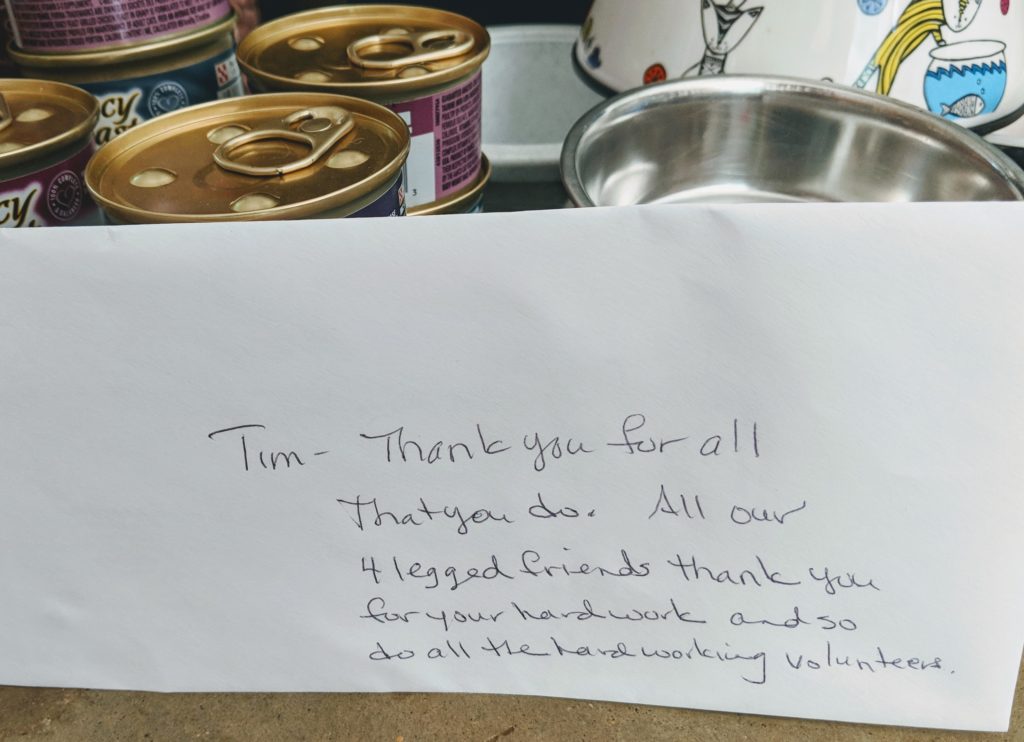 cy
ast
cy
3
Tim- Thank you for all
that you do. All our
4 legged friends thank you
for your hard work and so
do all the hard working volunteers.